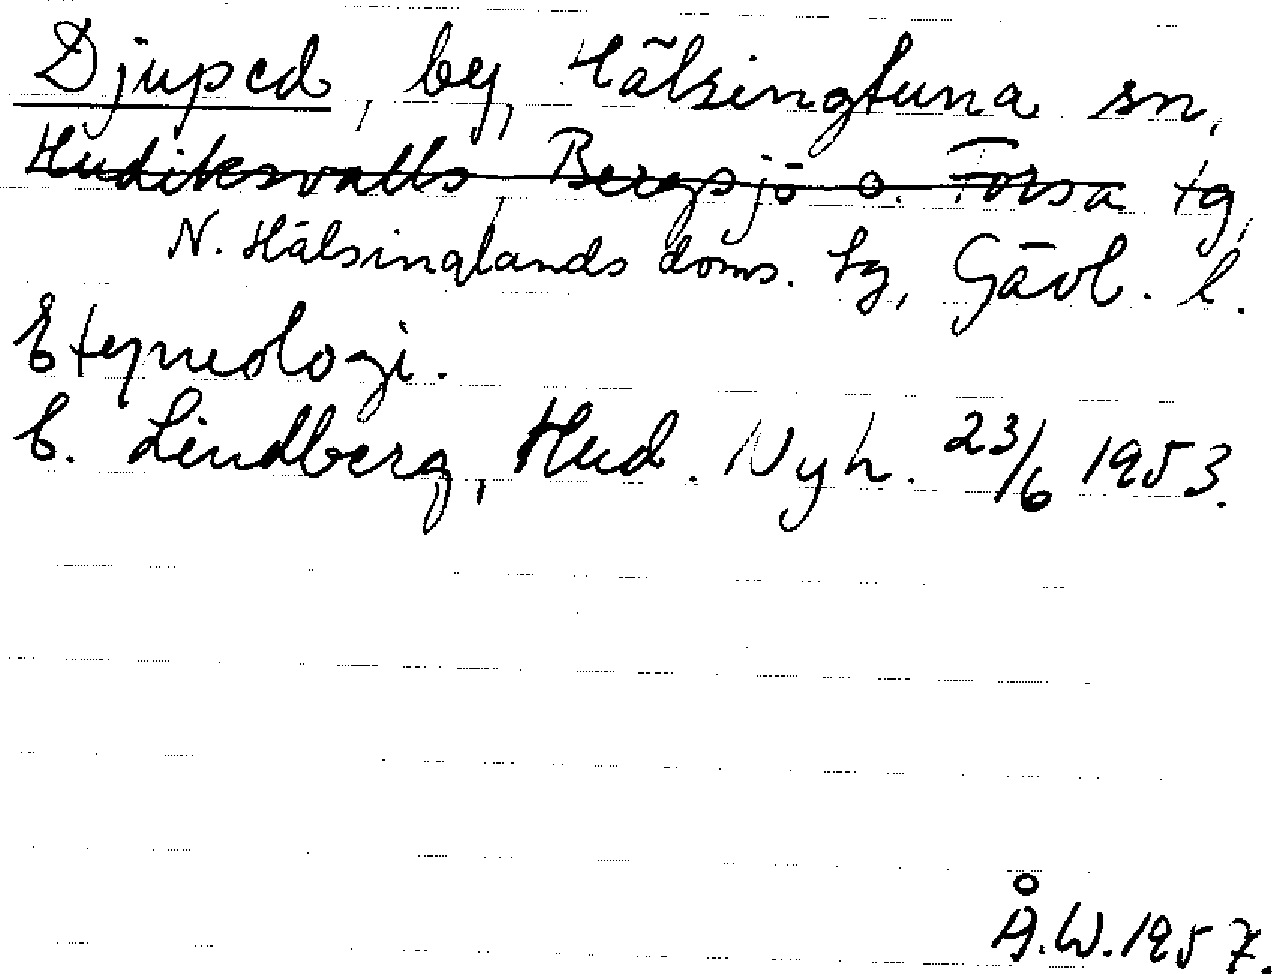 Djuped, by, Hälsingtuna sn,
Hudiksvalls, Bergsjö o. Forsa tg,
N. Hälsinglands doms. tg, Gävl. l.
Etymologi.
E. Lindberg, Hud. Nyh. 23/6 1953.
Å.W. 1957.